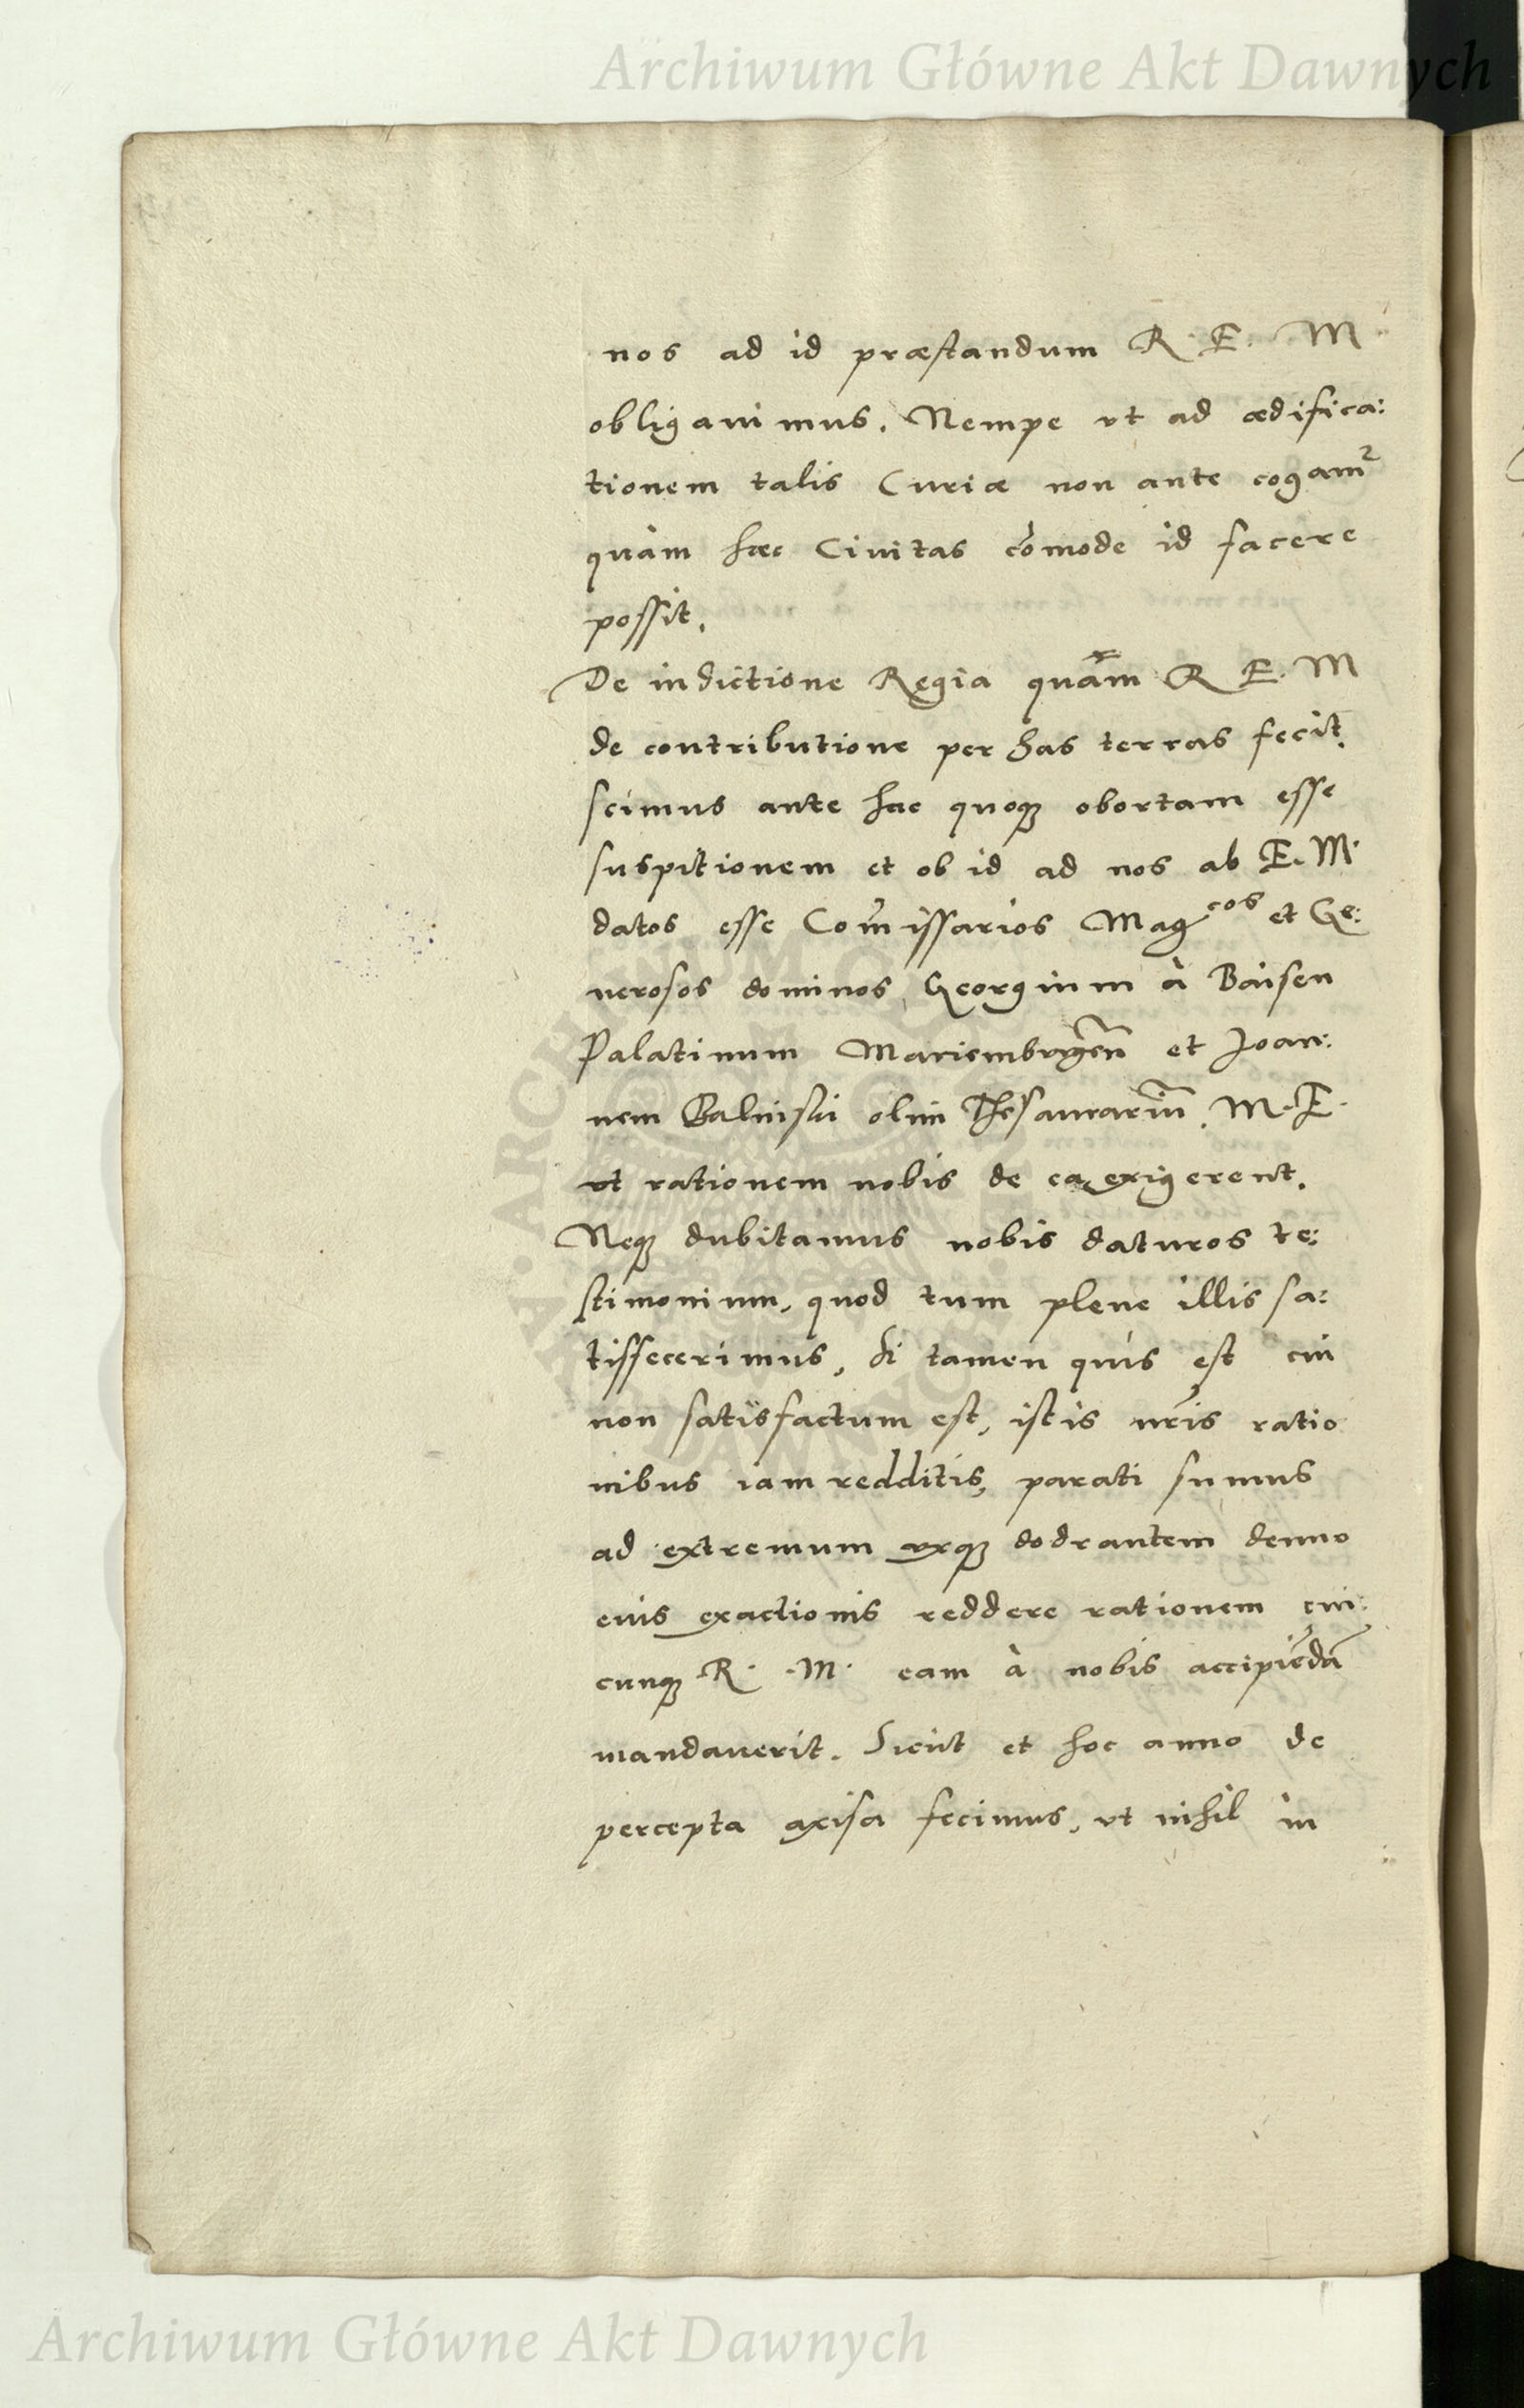 Archiwum Główne Akt Dawnych
nos ad id præstandum R. E. M.
obligauimus. Nempe vt ad ædifica:
tionem talis Curiæ non ante cogamr
quàm hæc Ciuitas cõmode id facere
possit.
De indictione Regia quam R E. M
de contributione per has terras fecit,
scimus ante hac quoq; obortam esse
suspitionem et ob id ad nos ab E. M.
datos esse Com̃issarios Mag cos et Ge:
nerosos dominos Georgium à Baisen
Palatinum Mariemburgen̄ et Joan:
nem Balinski olim Thesaurariū M. E.
vt rationem nobis de ea exigerent.
Neq; dubitamus nobis daturos te:
stimonium, quod tum plene illis sa:
tisfecerimus, Si tamen quis est cui
non satisfactum est, istis nr̃is ratio
nibus iam redditis, parati sumus
ad extremum vsq; dodrantem denuo
eius exactionis reddere rationem cui:
cunq; R. M. eam à nobis accipiẽdã
mandauerit. Sicut et hoc anno de
percepta axisa fecimus, vt nihil in
Archiwum Główne Akt Dawnych